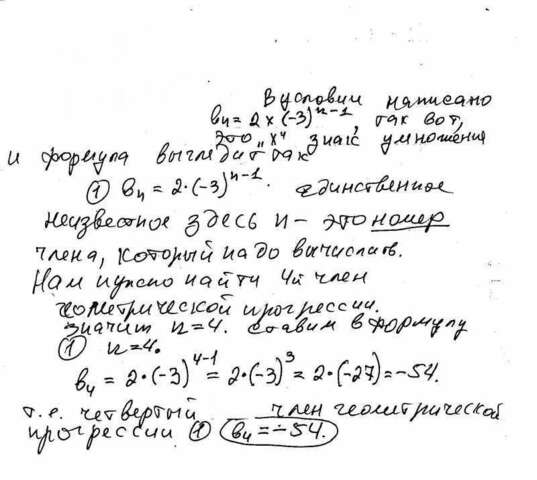 В условии написано
bₙ = 2 x (-3)ⁿ⁻¹, так вот,
это „x" знак умножения
и формула выглядит так
① bₙ = 2·(-3)ⁿ⁻¹. единственное
неизвестное здесь n - это номер
члена, который надо вычислить.
Нам нужно найти 4й член
геометрической прогрессии.
значит n=4. ставим в формулу
① n=4.
b₄ = 2·(-3)⁴⁻¹ = 2·(-3)³ = 2·(-27) = -54.
т.е. четвертый член геометрической
прогрессии ① b₄ = -54.